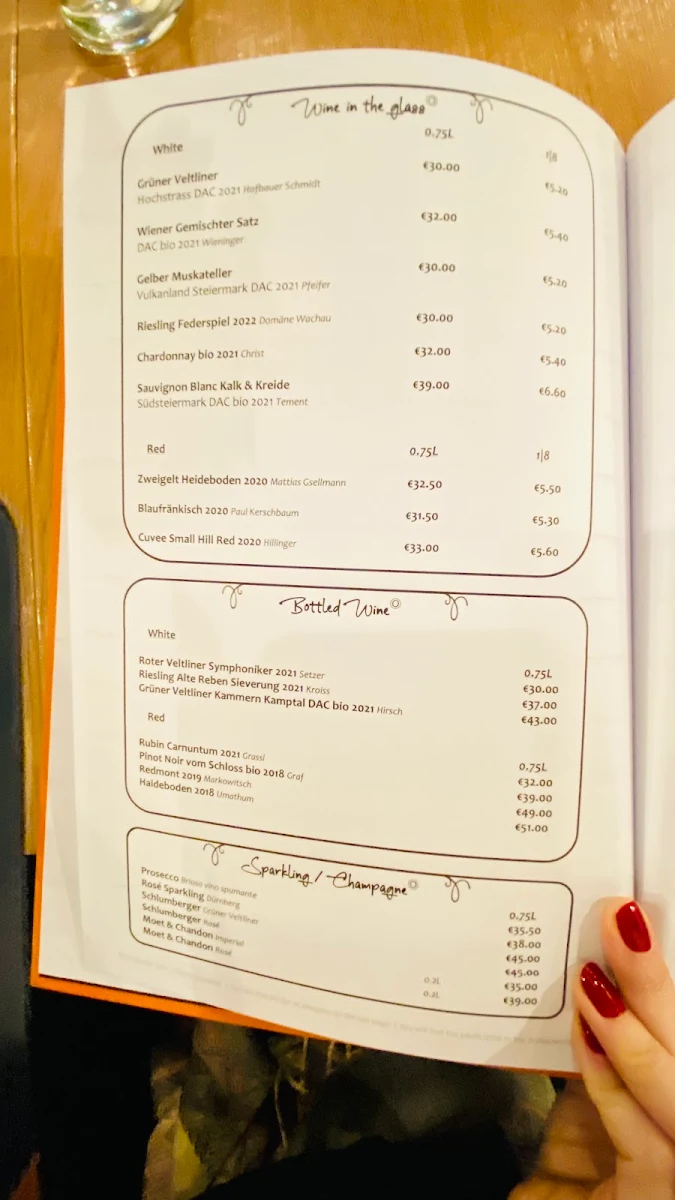 Wine in the glass
White 0.75L 1|8
Grüner Veltliner €30.00 €5.20
Hochstrass DAC 2021 Hofbauer Schmidt
Wiener Gemischter Satz €32.00 €5.40
DAC bio 2021 Wieninger
Gelber Muskateller €30.00 €5.20
Vulkanland Steiermark DAC 2021 Pfeifer
Riesling Federspiel 2022 Domäne Wachau €30.00 €5.20
Chardonnay bio 2021 Christ €32.00 €5.40
Sauvignon Blanc Kalk & Kreide €39.00 €6.60
Südsteiermark DAC bio 2021 Tement
Red 0.75L 1|8
Zweigelt Heideboden 2020 Mattias Gsellmann €32.50 €5.50
Blaufränkisch 2020 Paul Kerschbaum €31.50 €5.30
Cuvee Small Hill Red 2020 Hillinger €33.00 €5.60
Bottled Wine
White
0.75L
Roter Veltliner Symphoniker 2021 Setzer €30.00
Riesling Alte Reben Sieverung 2021 Kroiss €37.00
Grüner Veltliner Kammern Kamptal DAC bio 2021 Hirsch €43.00
Red
0.75L
Rubin Carnuntum 2021 Grassl €32.00
Pinot Noir vom Schloss bio 2018 Graf €39.00
Redmont 2019 Markowitsch €49.00
Haideboden 2018 Umathum €51.00
Sparkling / Champagne
0.75L
Prosecco Brioso vino spumante €35.50
Rosé Sparkling Dürnberg €38.00
Schlumberger Grüner Veltliner €45.00
Schlumberger Rosé €45.00
Moet & Chandon Imperial 0.2L €35.00
Moet & Chandon Rosé 0.2L €39.00